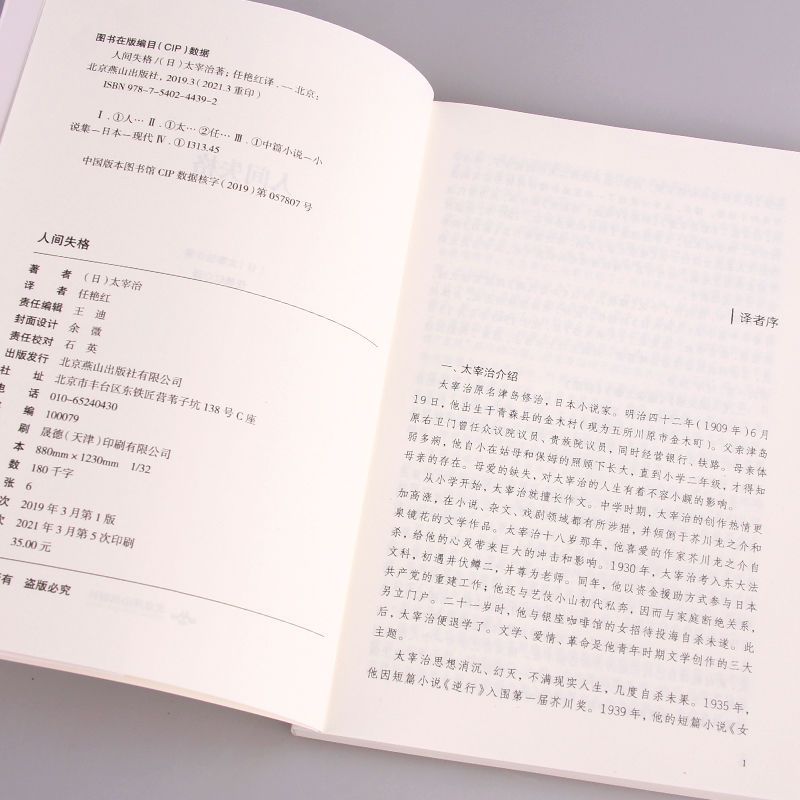 图书在版编目(CIP)数据
人间失格/(日)太宰治著;任艳红译.—北京:
北京燕山出版社,2019.3(2021.3重印)
ISBN 978-7-5402-4439-2
Ⅰ.①人… Ⅱ.①太… ②任… Ⅲ.①中篇小说—小
说集—日本—现代 Ⅳ.①I313.45
中国版本图书馆CIP数据核字(2019)第057807号
人间失格
著 者 (日)太宰治
译 者 任艳红
责任编辑 王 迪
封面设计 余 微
责任校对 石 英
出版发行 北京燕山出版社有限公司
社 址 北京市丰台区东铁匠营苇子坑138号C座
电 话 010-65240430
编 100079
刷 晟德(天津)印刷有限公司
本 880mm×1230mm 1/32
数 180千字
张 6
次 2019年3月第1版
次 2021年3月第5次印刷
35.00元
有 盗版必究
译者序
一、太宰治介绍
太宰治原名津岛修治,日本小说家。明治四十二年(1909年)6月
19日,他出生于青森县的金木村(现为五所川原市金木町)。父亲津岛
原右卫门曾任众议院议员、贵族院议员,同时经营银行、铁路。母亲体
弱多病,他自小在姑母和保姆的照顾下长大,直到小学二年级,才得知
母亲的存在。母爱的缺失,对太宰治的人生有着不容小觑的影响。
从小学开始,太宰治就擅长作文。中学时期,太宰治的创作热情更
加高涨,在小说、杂文、戏剧领域都有所涉猎,并倾倒于芥川龙之介和
泉镜花的文学作品。太宰治十八岁那年,他喜爱的作家芥川龙之介自
杀,给他的心灵带来巨大的冲击和影响。1930年,太宰治考入东大法
文科,初遇井伏鳟二,并尊为老师。同年,他以资金援助方式参与日本
共产党的重建工作;他还与艺伎小山初代私奔,因而与家庭断绝关系,
另立门户。二十一岁时,他与银座咖啡馆的女招待投海自杀未遂。此
后,太宰治便退学了。文学、爱情、革命是他青年时期文学创作的三大
主题。
太宰治思想消沉、幻灭,不满现实人生,几度自杀未果。1935年,
他因短篇小说《逆行》入围第一届芥川奖。1939年,他的短篇小说《女
1